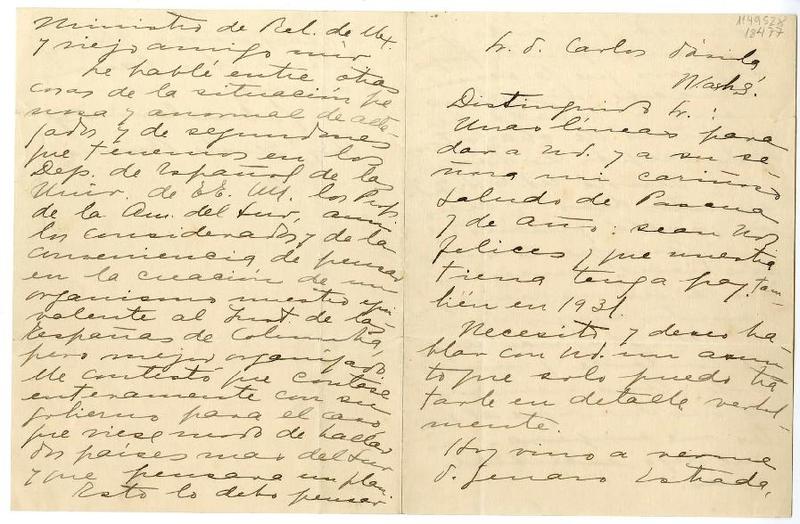 1149528
18477
Sr. D. Carlos Dávila,
Wash.
Distinguido Sr.:
Unas líneas para
dar a Ud. y a su se-
ñora mi cariñoso
saludo de Pascua
y de año: sean Uds.
felices y que nuestra
tierra tenga paz tam-
bién en 1931.
Necesito y deseo ha-
blar con Ud. un asun-
to que solo puedo tra
tarle en detalle verbal-
mente.
Hoy vino a verme
D. Genaro Estrada,
Ministro de Rel. de Mex.
y viejo amigo mío.
Le hablé entre otras
cosas de la situación pe
nosa y anormal de
y de segundones
que tenemos en los
Dep. de Español de las
Univ. de EE. UU. los Profs.
de la Am. del Sur,
los considerados y de la
conveniencia de pensar
en la creación de un
organismo nuestro equi
valente al Inst. de las
Españas de Columbia,
pero mejor organizado
Me contestó que contase
enteramente con su
gobierno para el caso
que viese modo de hallar
dos países mas del Sur
y que pensara un plan.
Esto lo debo pensar